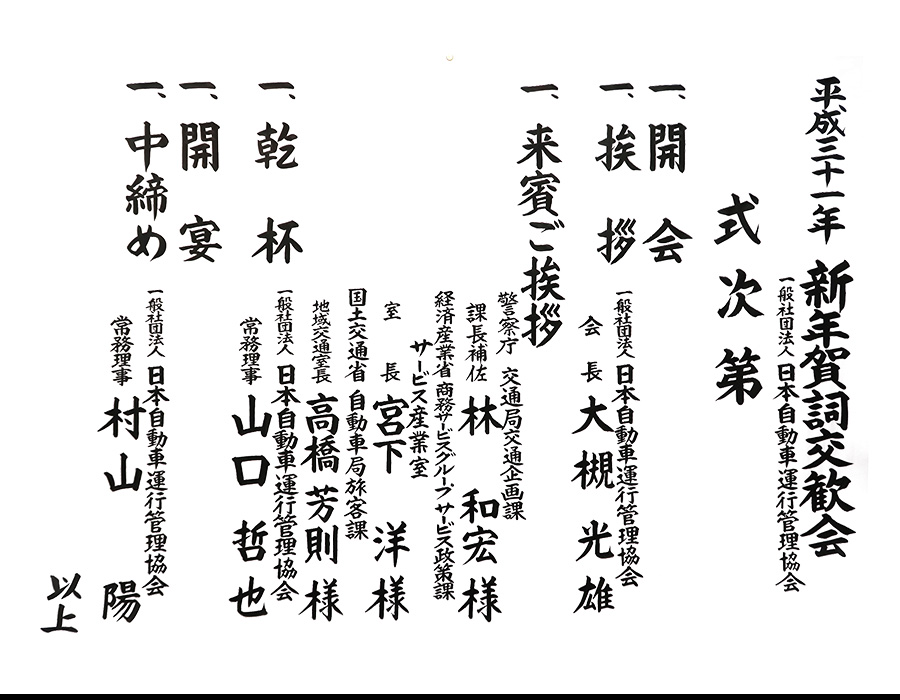 平成三十一年 新年賀詞交歓会
一般社団法人 日本自動車運行管理協会
式次第
一、開会
一、挨拶
一般社団法人 日本自動車運行管理協会
会長 大槻 光雄
一、来賓ご挨拶
警察庁 交通局交通企画課
課長補佐 林 和宏 様
経済産業省 商務サービスグループ サービス政策課
サービス産業室
室長 宮下 洋 様
国土交通省 自動車局旅客課
地域交通室長 高橋 芳則 様
一、乾杯
一般社団法人 日本自動車運行管理協会
常務理事 山口 哲也
一、開宴
一、中締め
一般社団法人 日本自動車運行管理協会
常務理事 村山 陽
以上